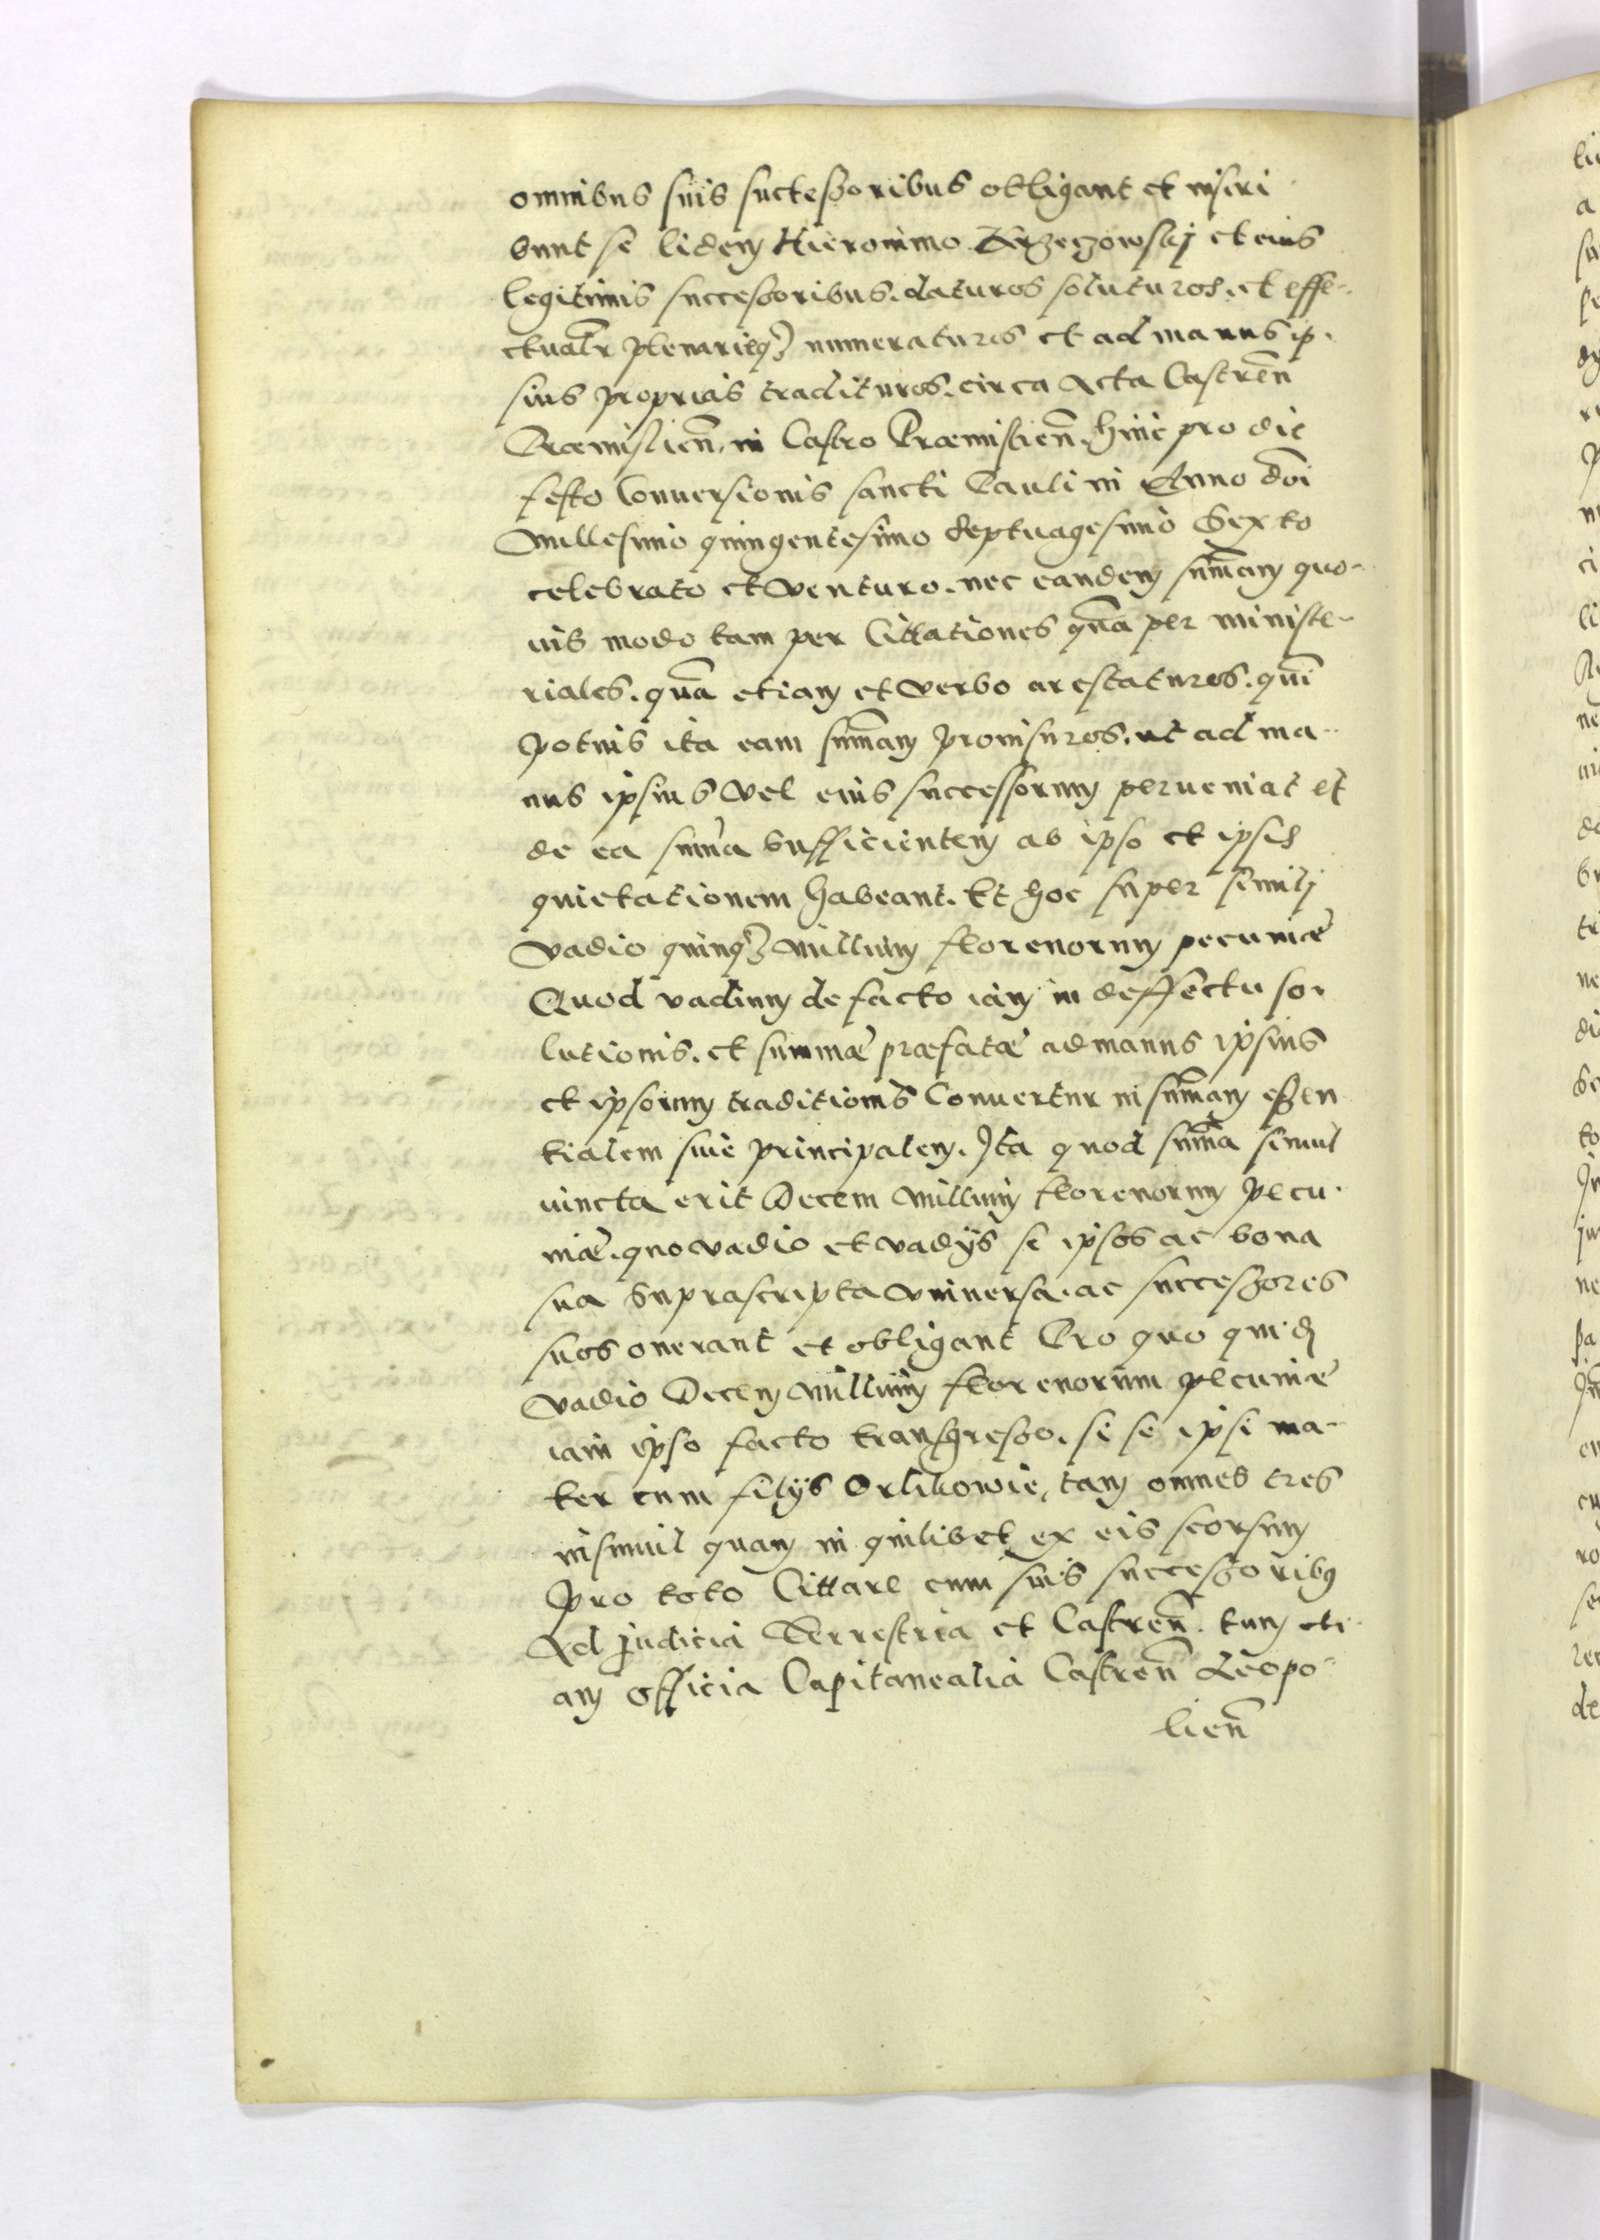 omnibus suis successoribus obligant et inscri
bunt se eidem Hieronimo Krzeczowskj et eius
legitimis successoribus. daturos soluturos. et effe-
ctualr plenarieqз numeraturos et ad manus ip.
sius proprias tradituros. circa Acta Castren̄
Præmislien̄. in Castro Præmislien̄. hinc pro die
festo Conuersionis sancti Pauli in Anno dn̄i
Millesimo quingentesimo Septuagesimo Sexto
celebrato et venturo. nec eandem sum̄am quo-
uis modo tam per Cittationes qua͞ per ministe-
riales. qua͞ etiam et verbo arestaturos. qui͞
potius ita eam sum̄am prouisuros. ut ad ma-
nus ipsius vel eius successorum perueniat et
de ea sum̄a sufficientem ab ipso et ipsis
quietationem habeant. Et hoc super similj
vadio quinqз Millium florenorum pecuniæ
Quod vadium de facto iam in deffectu so.
lutionis. et summæ præfatæ ad manus ipsius
et ipsorum traditionis Conuertur in sum̄am essen
tialem siue principalem. Ita quod sum̄a simul
iuncta erit Decem Millium florenorum pecu.
niæ. quo vadio et vadijs se ipsos ac bona
sua suprascripta vniuersa. ac successores
suos onerant et obligant Pro quo quid
vadio Decem Millium florenorum pecuniæ
iam ipso facto transgresso. si se ipsi ma-
ter cum filijs Orlikowie, tam omnes tres
insimul quam in quilibet ex eis seorsum
pro toto Cittare cum suis successoribꝰ
Ad Judicia Terrestria et Castren̄. tum eti
am officia Capitanealia Castren̄ Leopo-
lien̄